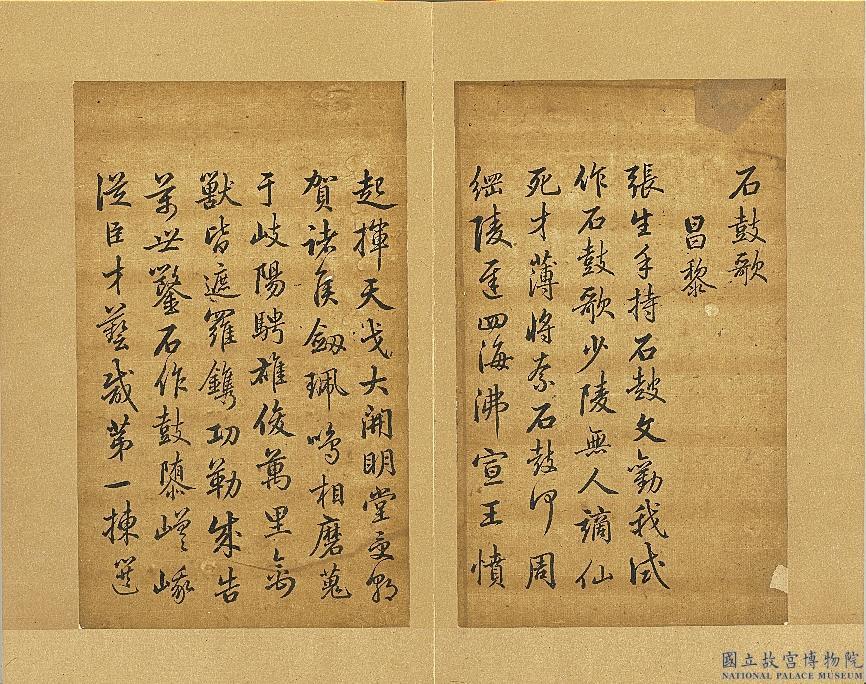 石鼓歌
昌黎
張生手持石鼓文勸我試
作石鼓歌少陵無人謫仙
死才薄將奈石鼓何周
綱陵遲四海沸宣王憤
起揮天戈大開明堂受朝
賀諸侯劔珮鳴相磨蒐
于岐陽騁雄俊萬里禽
獸皆遮羅鐫功勒成告
萬世鑿石作鼓隳嵯峨
從臣才藝咸第一揀選
國立故宮博物院
NATIONAL PALACE MUSEUM